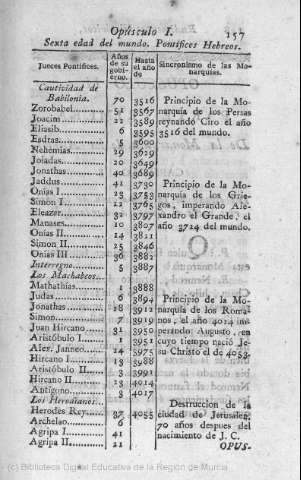 Opúsculo I. 157
Sexta edad del mundo. Pontífices Hebreos.
Jueces Pontífices. Años de su gobierno. Hasta el año de Sincronismo de las Monarquías.
Cautividad de
Babilonia. 70 3516 Principio de la Mo-
Zorobabel. 51 3567 narquía de los Persas
Joacim 22 3589 reynando Ciro el año
Eliasib. 6 3595 3516 del mundo.
Esdras. 5 3600
Nehémias. 29 3629
Joiadas. 20 3649
Jonathas 40 3689
Jaddus 41 3730 Principio de la Mo-
Onías I 23 3753 narquía de los Grie-
Simon I 12 3765 gos, imperando Ale-
Eleazer. 32 3797 xandro el Grande, el
Manases. 10 3807 año 3724 del mundo.
Onías II 14 3821
Simon II 25 3846
Onías III 36 3882
Interregno 5 3887
Los Machabeos.
Mathathías 1 3888
Judas. 6 3894 Principio de la Mo-
Jonathas 18 3912 narquía de los Roma-
Simon. 7 3919 nos, el año 4014 im-
Juan Hircano 31 3950 perando Augusto, en
Aristóbulo I. 1 3951 cuyo tiempo nació Je-
Alex. Janneo 24 3975 su Christo el de 4053.
Hircano I 13 3988
Aristóbulo II. 3 3991
Hircano II 23 4014
Antígono. 3 4017
Los Herodianos. Destruccion de la
Herodes Rey. 37 4055 ciudad de Jerusalen,
Archelao 6 70 años despues del
Agripa I 41 nacimiento de J. C.
Agripa II 21
OPUS-
(c) Biblioteca Digital Educativa de la Región de Murcia